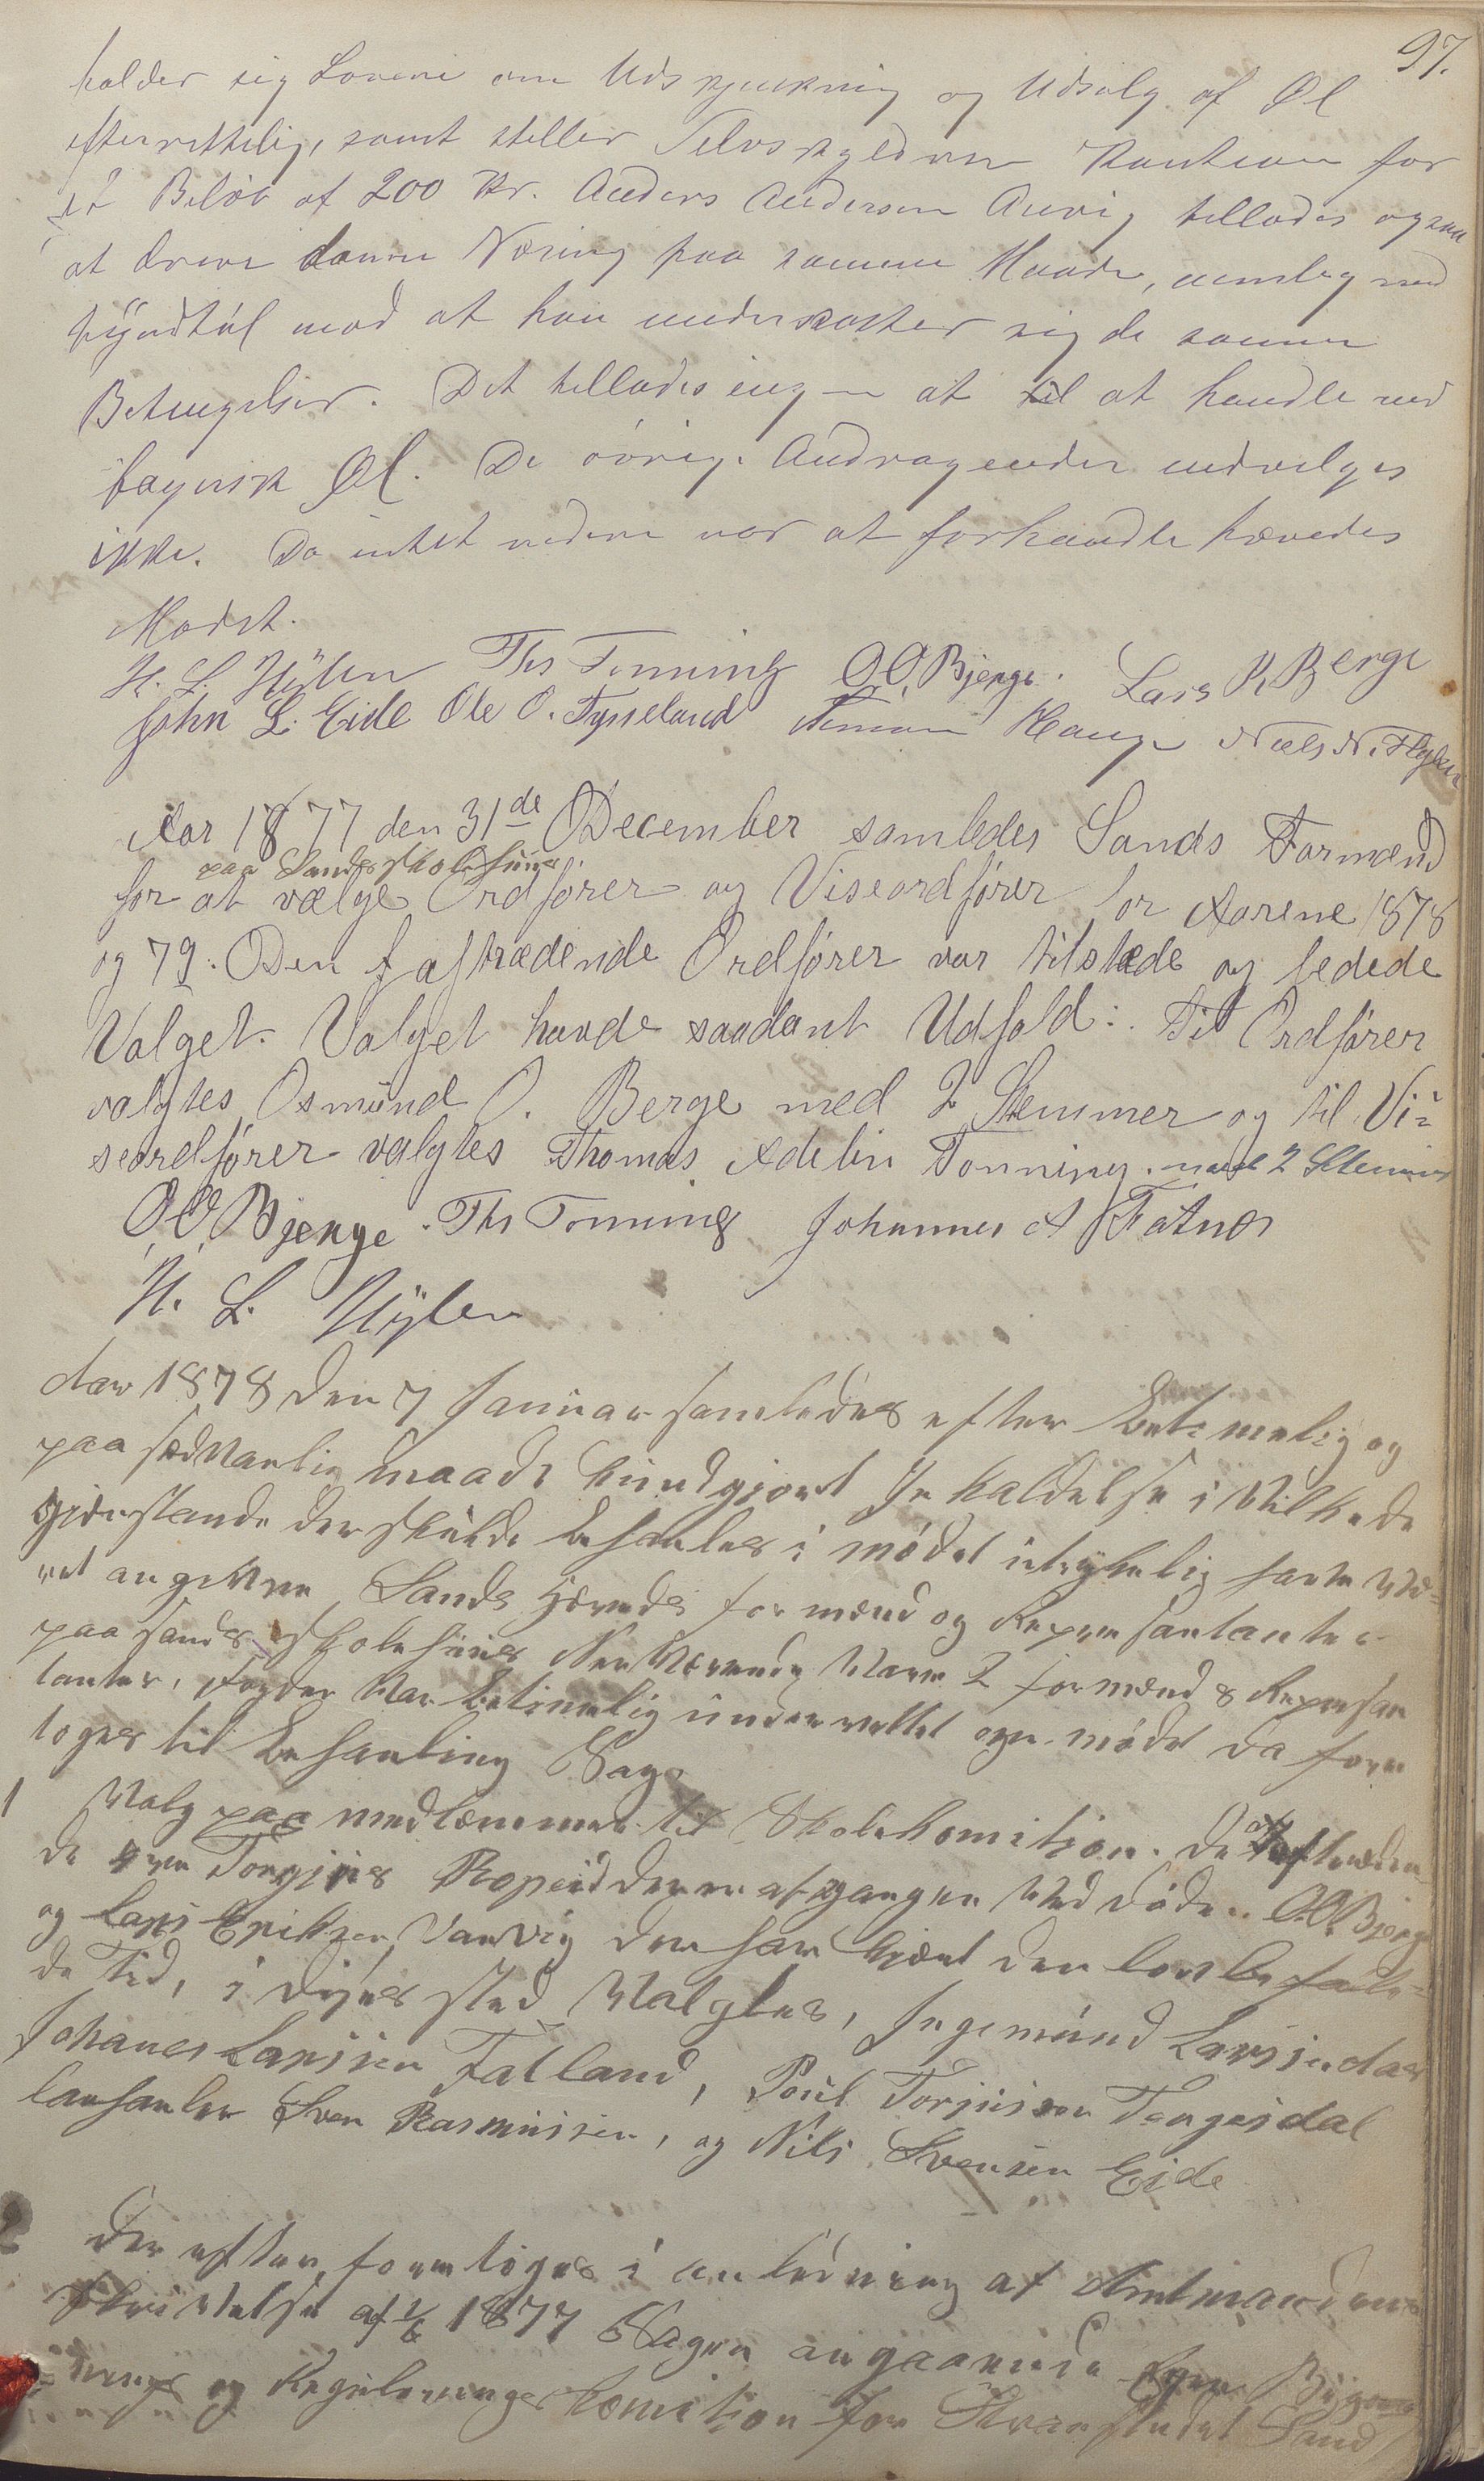 97.
holder sig Lovene om Udskjænkning og Udsalg af Øl
efterrettelig, samt stiller Selvskyldner Kaution for
et Beløb af 200 Kr. Anders Andersen Aarvig tillades ogsaa
at drive denne Næring paa samme Maade, nemlig med
tÿndtöl mod at han underkaster sig de samme
Betingelser. Det tillades ingen at til at handle med
bayersk Øl. De øvrige Andragender indvilges
ikke. Da intet videre var at forhandle hævedes
Mødet.
H. L. Hÿlen Ths Tonning O.O. Bjerge. Lars R Berge
John L. Eide Ole O. Tysseland Simon Hauge Niels N. Hylen
Aar 1877 den 31de December samledes Sands Formænd
paa Sands skolehuus
for at vælge Ordfører og Viseordfører for Aarene 1878
og 79. Den f aftrædende Ordfører var tilstede og ledede
Valget. Valget havde saadant Udfald: Til Ordfører
valgtes Osmund O. Berge med 2 Stemmer og til Vi=
seordfører valgtes Thomas Adelin Tonning. med 2 Stemmer
O.O. Bjerge. Ths Tonning Johannes A Fatnes
H. L. Hÿlen
Aar 1878 den 7 Januar samledes efter betimelig og
paa sædvanlig maade kundgjort Inkaldelse i vilke de
gjenstande der skulde behanles i mødet utrykelig harte vær=
ret angivne Sands Hereds formænd og Representanter
paa Sands skolehuus Nerværende vare 2 formænd & Represen
tanter, Fogden var betimelig underrettet om mødet da fore
toges til behanling Sag
1 Valg paa medlemmer til Skolekomition. De aftræden
de ere Torgjus Ropeid der er afgangen ved døden O.O. Bjerge
og Lars Eriksen Vanvig der har tjent den lovbefale=
de Tid, i dises sted valgtes, Ingemund Larsen
Johanes Larssen Falland, Poul Torjussen Tengesdal
lensmanden Sven Rasmussen, og Nils Svensen Eide
2 Der efter foretoges i anledning af Amtmandens
skrivelse af 1877 Sagen angaaende en Bygnings
og Reguleringskomition for Strandstedet Sand